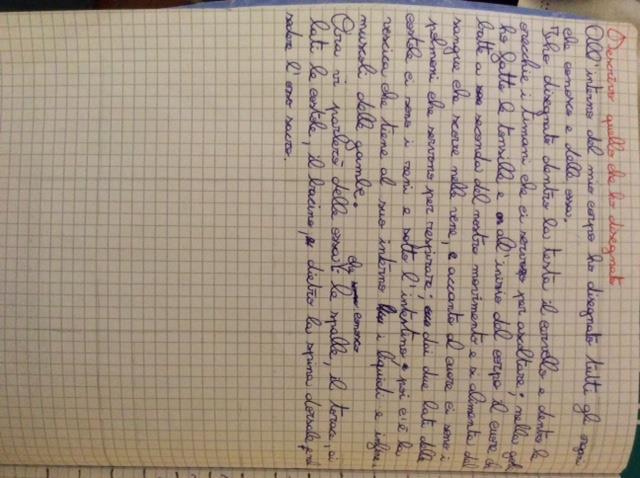 Descrivo quello che ho disegnato
All'interno del mio corpo ho disegnato tutti gli organi
che conosco e delle ossa.
Ho disegnato dentro la testa il cervello e dentro le
orecchie i timpani che ci servono per ascoltare; nella gola
ho fatto le tonsille e all'inizio del corpo il cuore che
batte a seconda del nostro movimento e si alimenta del
sangue che scorre nelle vene, e accanto al cuore ci sono i
polmoni che servono per respirare; dai due lati delle
costole ci sono i reni e sotto l'intestino e poi c'è la
vescica che tiene al suo interno i liquidi e infine i
muscoli delle gambe.
Ora vi parlerò delle ossa che conosco: le spalle, il torace, ai
lati le costole, il bacino, dietro la spina dorsale per
l'osso sacro.